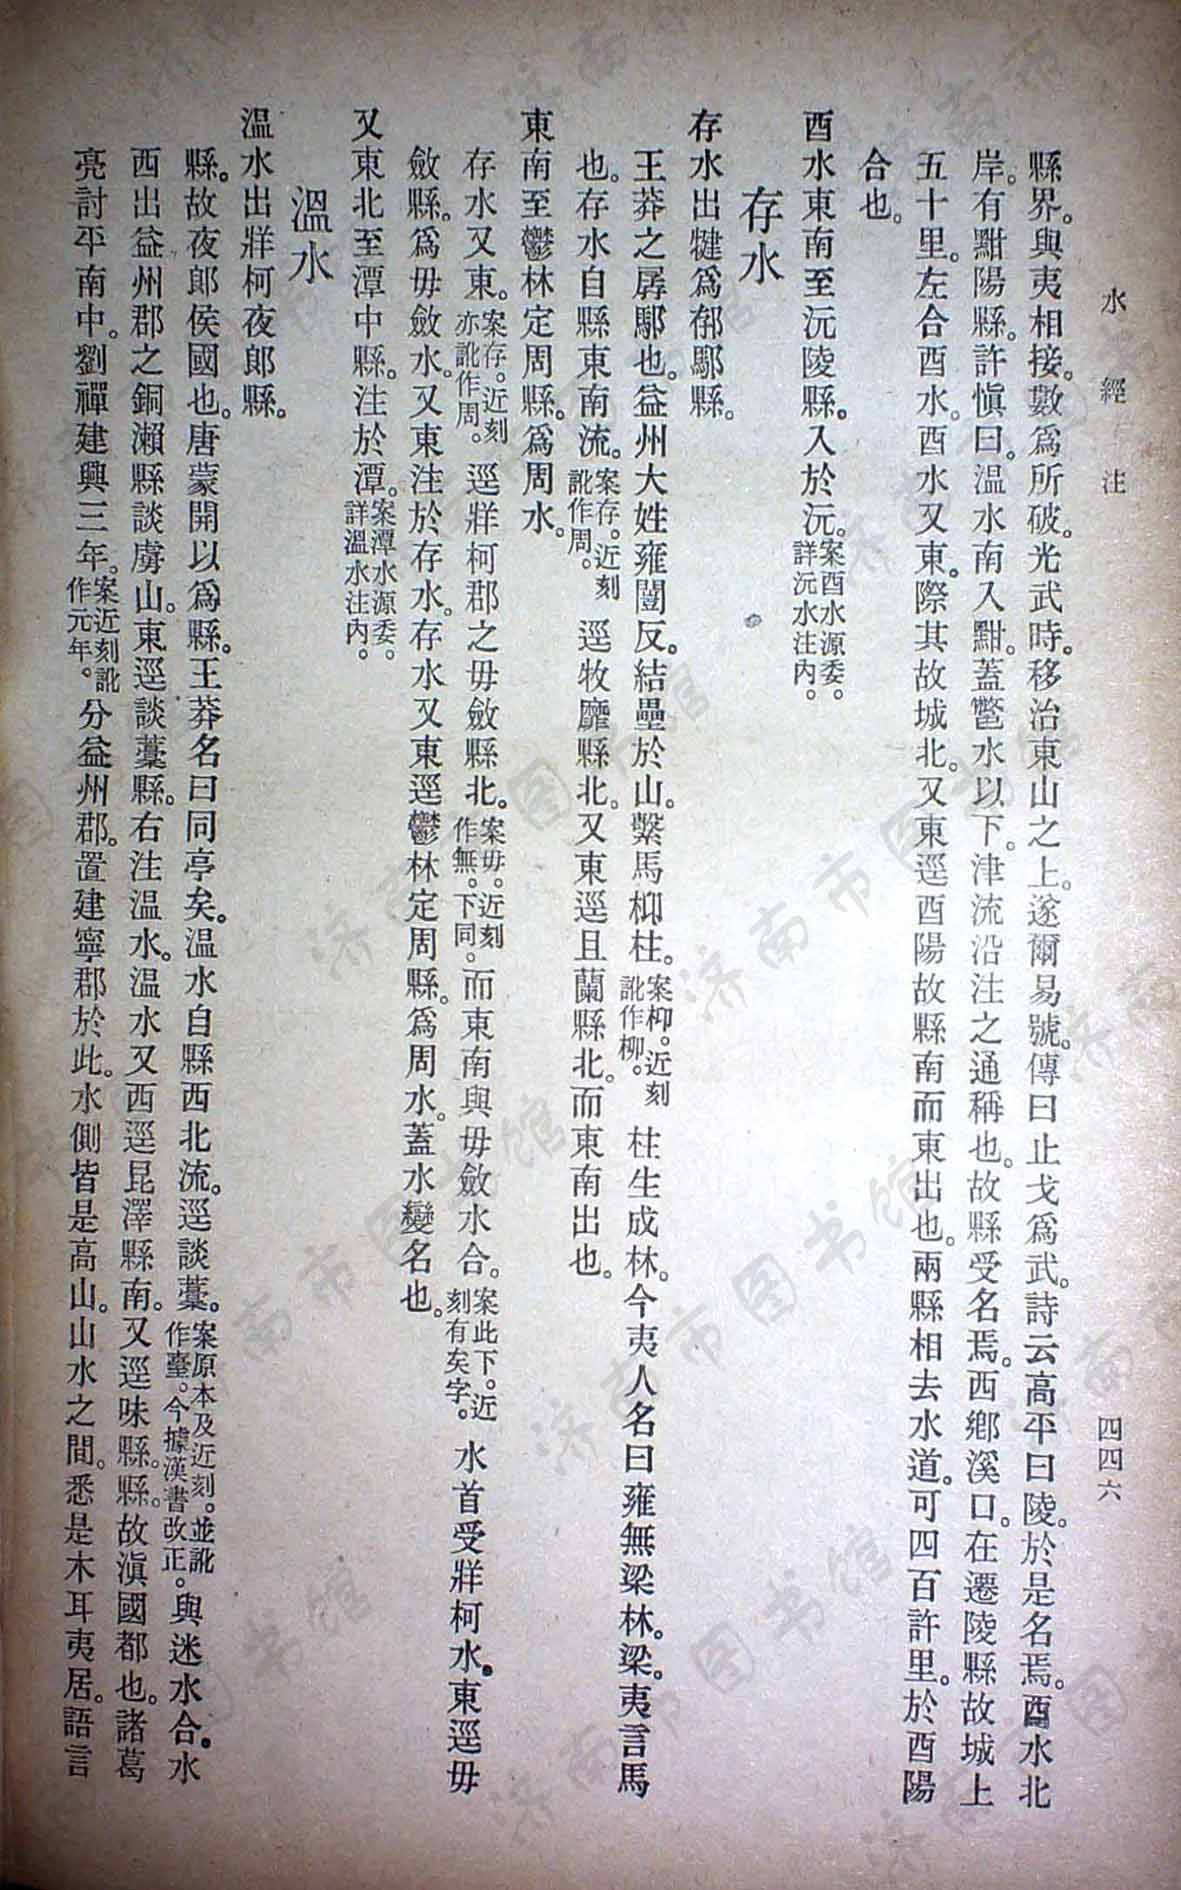 水經注
四四六
縣界。與夷相接。數爲所破。光武時。移治東山之上。遂爾易號。傳曰止戈爲武。詩云高平曰陵。於是名焉。酉水北
岸。有黚陽縣。許愼曰。溫水南入黚。蓋鷩水以下。津流沿注之通稱也。故縣受名焉。西鄉溪口。在遷陵縣故城上
五十里。左合酉水。酉水又東。際其故城北。又東逕酉陽故縣南而東出也。兩縣相去水道。可四百許里。於酉陽
合也。
酉水東南至沅陵縣。入於沅。案酉水源委。詳沅水注內。
存水
存水出犍爲郁鄢縣。
王莽之孱鄢也。益州大姓雍闓反。結壘於山。繫馬枊柱。案枊。近刻訛作柳。柱生成林。今夷人名曰雍無梁林。梁。夷言馬
也。存水自縣東南流。案存。近刻訛作周。逕牧靡縣北。又東逕且蘭縣北。而東南出也。
東南至鬱林定周縣。爲周水。
存水又東。案存。近刻亦訛作周。逕牂柯郡之毋斂縣北。案毋。近刻作無。下同。而東南與毋斂水合。案此下。近刻有矣字。水首受牂柯水。東逕毋
斂縣。爲毋斂水。又東注於存水。存水又東逕鬱林定周縣。爲周水。蓋水變名也。
又東北至潭中縣。注於潭。案潭水源委。詳溫水注內。
溫水
溫水出牂柯夜郞縣。
縣。故夜郞侯國也。唐蒙開以爲縣。王莽名曰同亭矣。溫水自縣西北流。逕談藁。案原本及近刻。並訛作臺。今據漢書改正。與迷水合。水
西出益州郡之銅瀨縣談虜山。東逕談藁縣。右注溫水。溫水又西逕昆澤縣南。又逕味縣。縣。故滇國都也。諸葛
亮討平南中。劉禪建興三年。案近刻訛作元年。分益州郡。置建寧郡於此。水側皆是高山。山水之間。悉是木耳夷居。語言